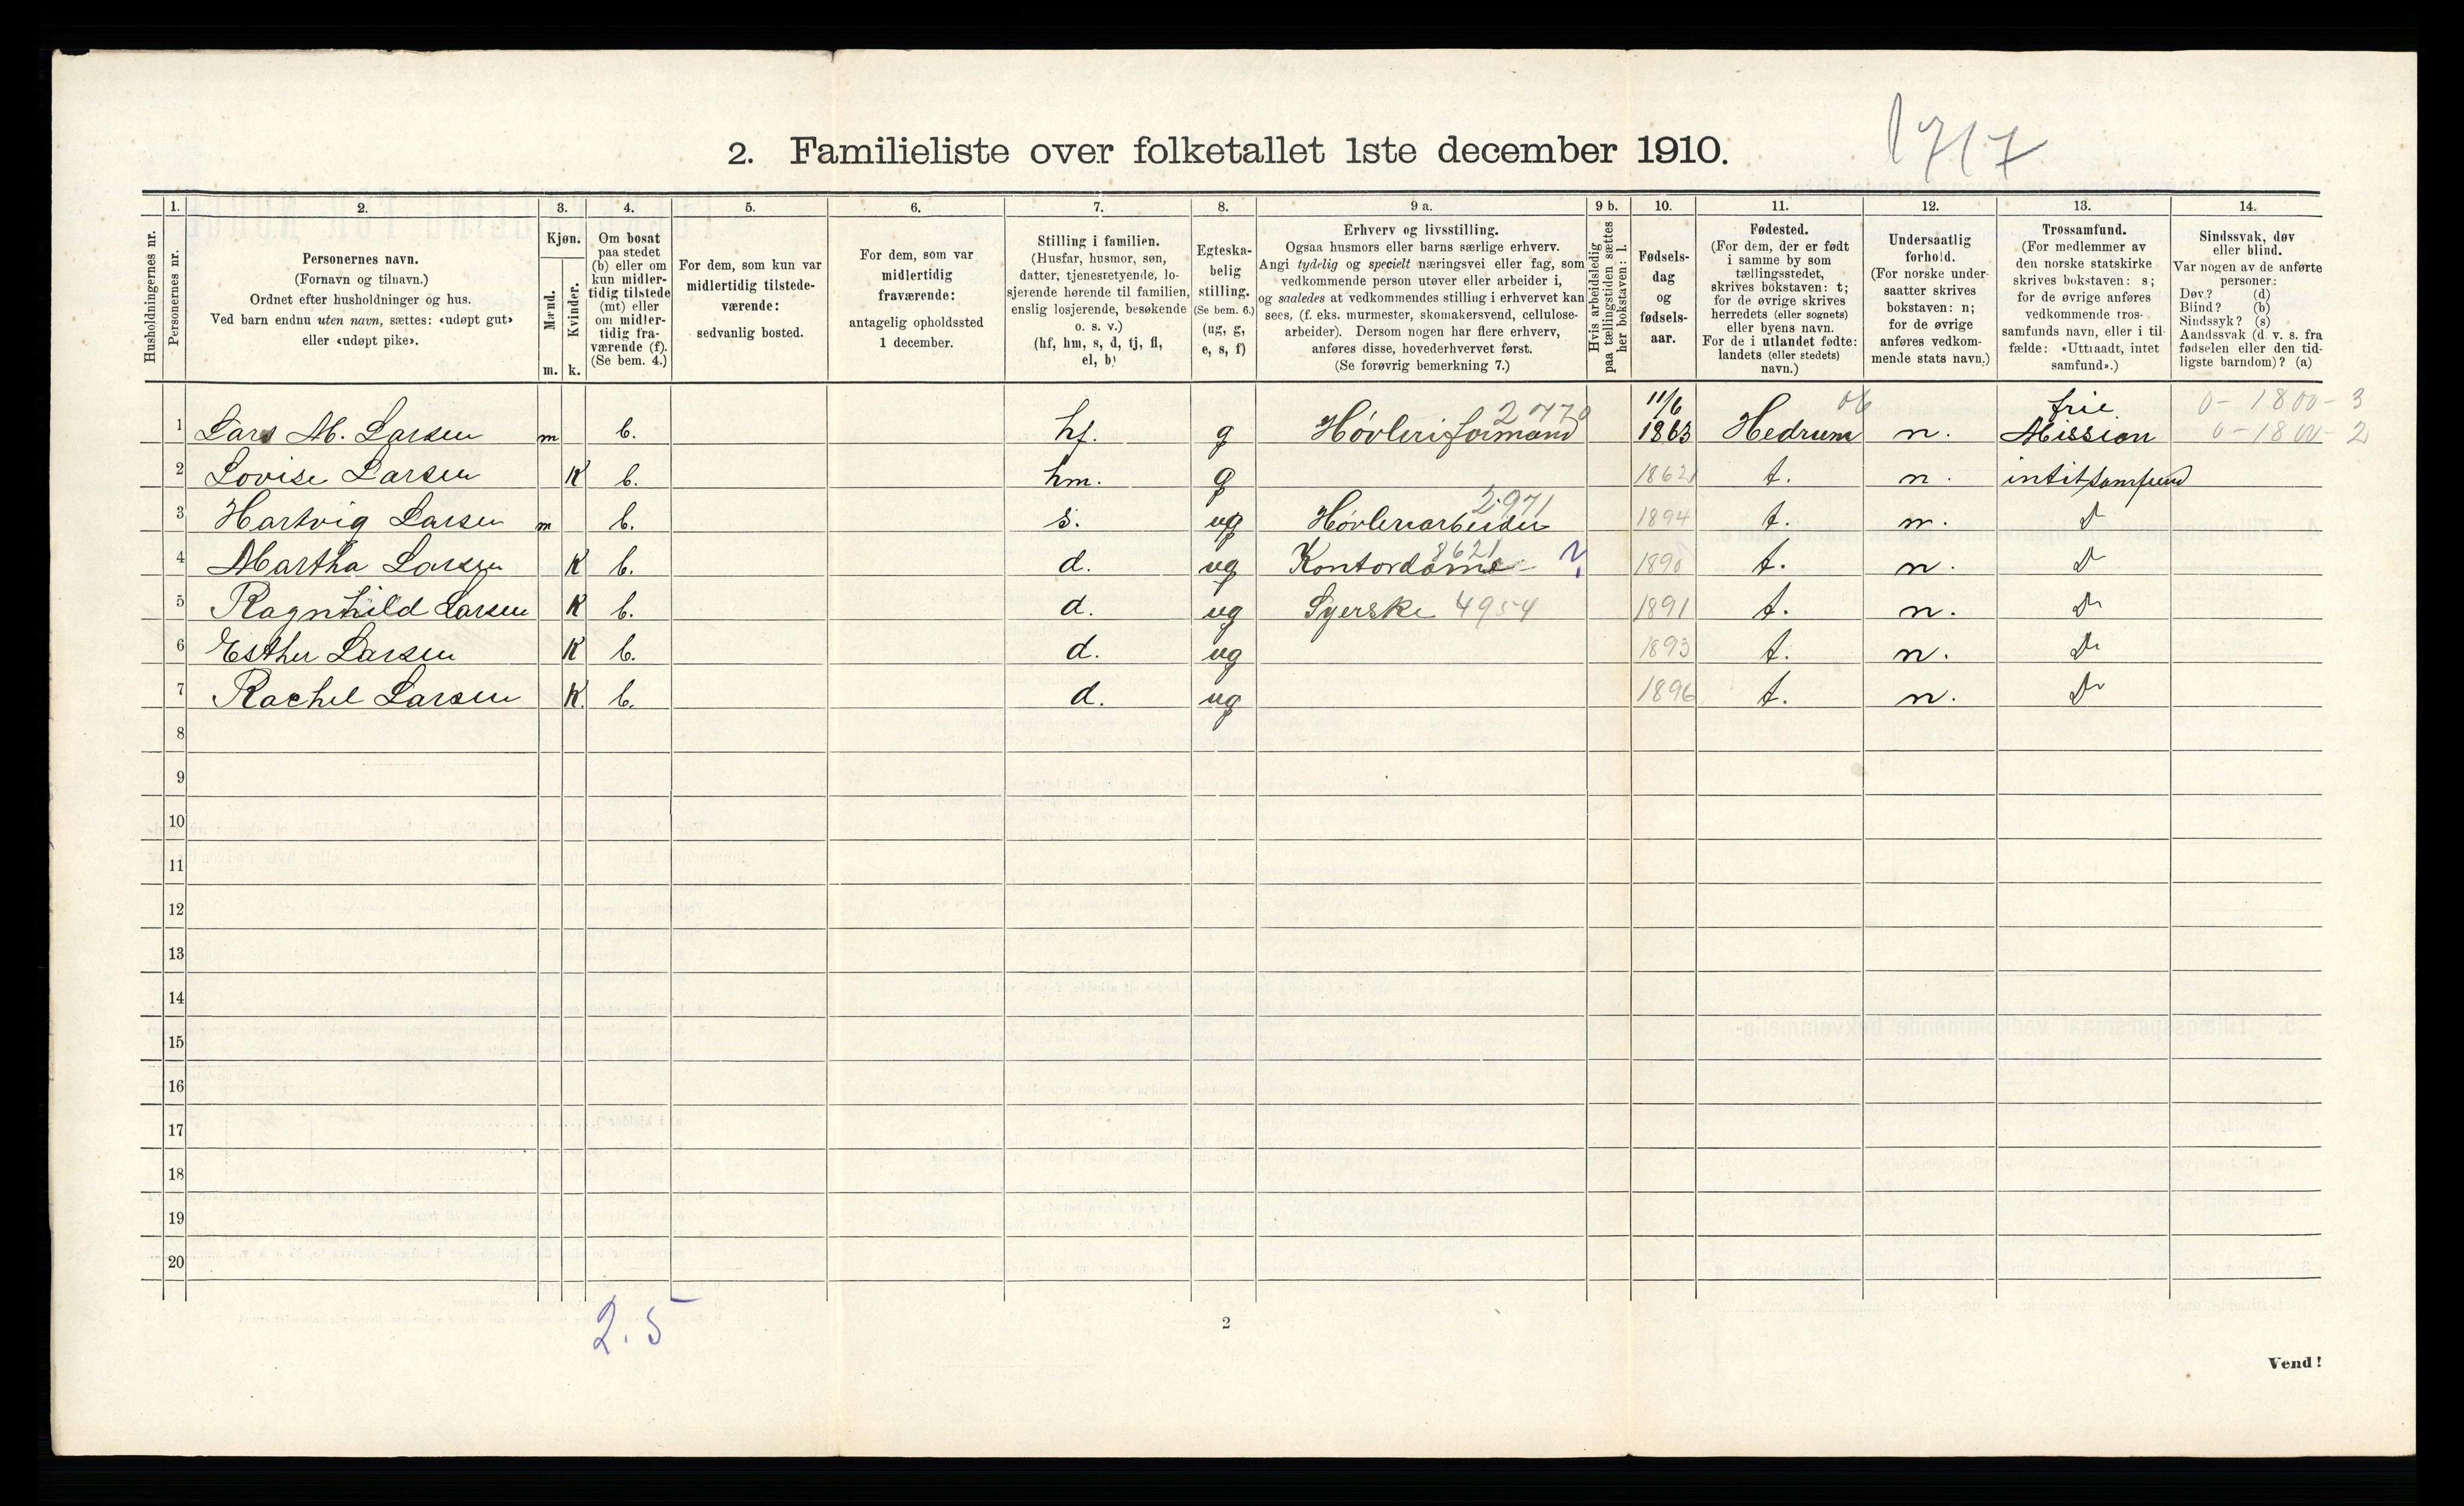 1717
2. Familieliste over folketallet 1ste december 1910.
Husholdningernes nr.
1.
Personernes nr.
2.
Personernes navn.
(Fornavn og tilnavn.)
Ordnet efter husholdninger og hus.
Ved barn endnu uten navn, sættes: «udøpt gut»
eller «udøpt pike».
3.
Kjøn.
Mænd.
m.
Kvinder.
k.
4.
Om bosat
paa stedet
(b) eller om
kun midler-
tidig tilstede
(mt) eller
om midler-
tidig fra-
værende (f).
(Se bem. 4.)
5.
For dem, som kun var
midlertidig tilstede-
værende:
sedvanlig bosted.
6.
For dem, som var
midlertidig
fraværende:
antagelig opholdssted
1 december.
7.
Stilling i familien.
(Husfar, husmor, søn,
datter, tjenestetyende, lo-
sjerende hørende til familien,
enslig losjerende, besøkende
o. s. v.)
(hf, hm, s, d, tj, fl,
el, b)
8.
Egteska-
belig
stilling.
(Se bem. 6.)
(ug, g,
e, s, f)
9 a.
Erhverv og livsstilling.
Ogsaa husmors eller barns særlige erhverv.
Angi tydelig og specielt næringsvei eller fag, som
vedkommende person utøver eller arbeider i,
og saaledes at vedkommendes stilling i erhvervet kan
sees, (f. eks. murmester, skomakersvend, cellulose-
arbeider). Dersom nogen har flere erhverv,
anføres disse, hovederhvervet først.
(Se forøvrig bemerkning 7.)
9 b.
Hvis arbeidsledig
paa tællingstiden sættes
her bokstaven: l.
10.
Fødsels-
dag
og
fødsels-
aar.
11.
Fødested.
(For dem, der er født
i samme by som
tællingsstedet,
skrives bokstaven: t;
for de øvrige skrives
herredets (eller sognets)
eller byens navn.
For de i utlandet fødte:
landets (eller stedets)
navn.)
12.
Undersaatlig
forhold.
(For norske under-
saatter skrives
bokstaven: n;
for de øvrige
anføres vedkom-
mende stats navn.)
13.
Trossamfund.
(For medlemmer av
den norske statskirke
skrives bokstaven: s;
for de øvrige anføres
vedkommende tros-
samfunds navn, eller i til-
fælde: «Uttraadt, intet
samfund».)
14.
Sindssvak, døv
eller blind.
Var nogen av de anførte
personer:
Døv? (d)
Blind? (b)
Sindssyk? (s)
Aandssvak (d. v. s. fra
fødselen eller den tid-
ligste barndom)? (a)
2770 11/6 06 frie 0-1800-3
1 Lars M. Larsen m b. hf. g Høvleriformand 1863 Hedrum n. Mission 0-1800-2
2 Lovise Larsen K b. hm. g 1862 t. n. intit samfund
2971
3 Hartvig Larsen m b. s. ug Høvleriarbeider 1894 t. n. D
8621
4 Martha Larsen K b. d. ug Kontordame 1890 t. n. D
5 Ragnhild Larsen K b. d. ug Syerske 4954 1891 t. n. Do
6 Esther Larsen K b. d. ug 1893 t. n. Do
7 Rachel Larsen K. b. d. ug 1896 t. n. Do
8
9
10
11
12
13
14
15
16
17
18
19
20
2.5
2
Vend!